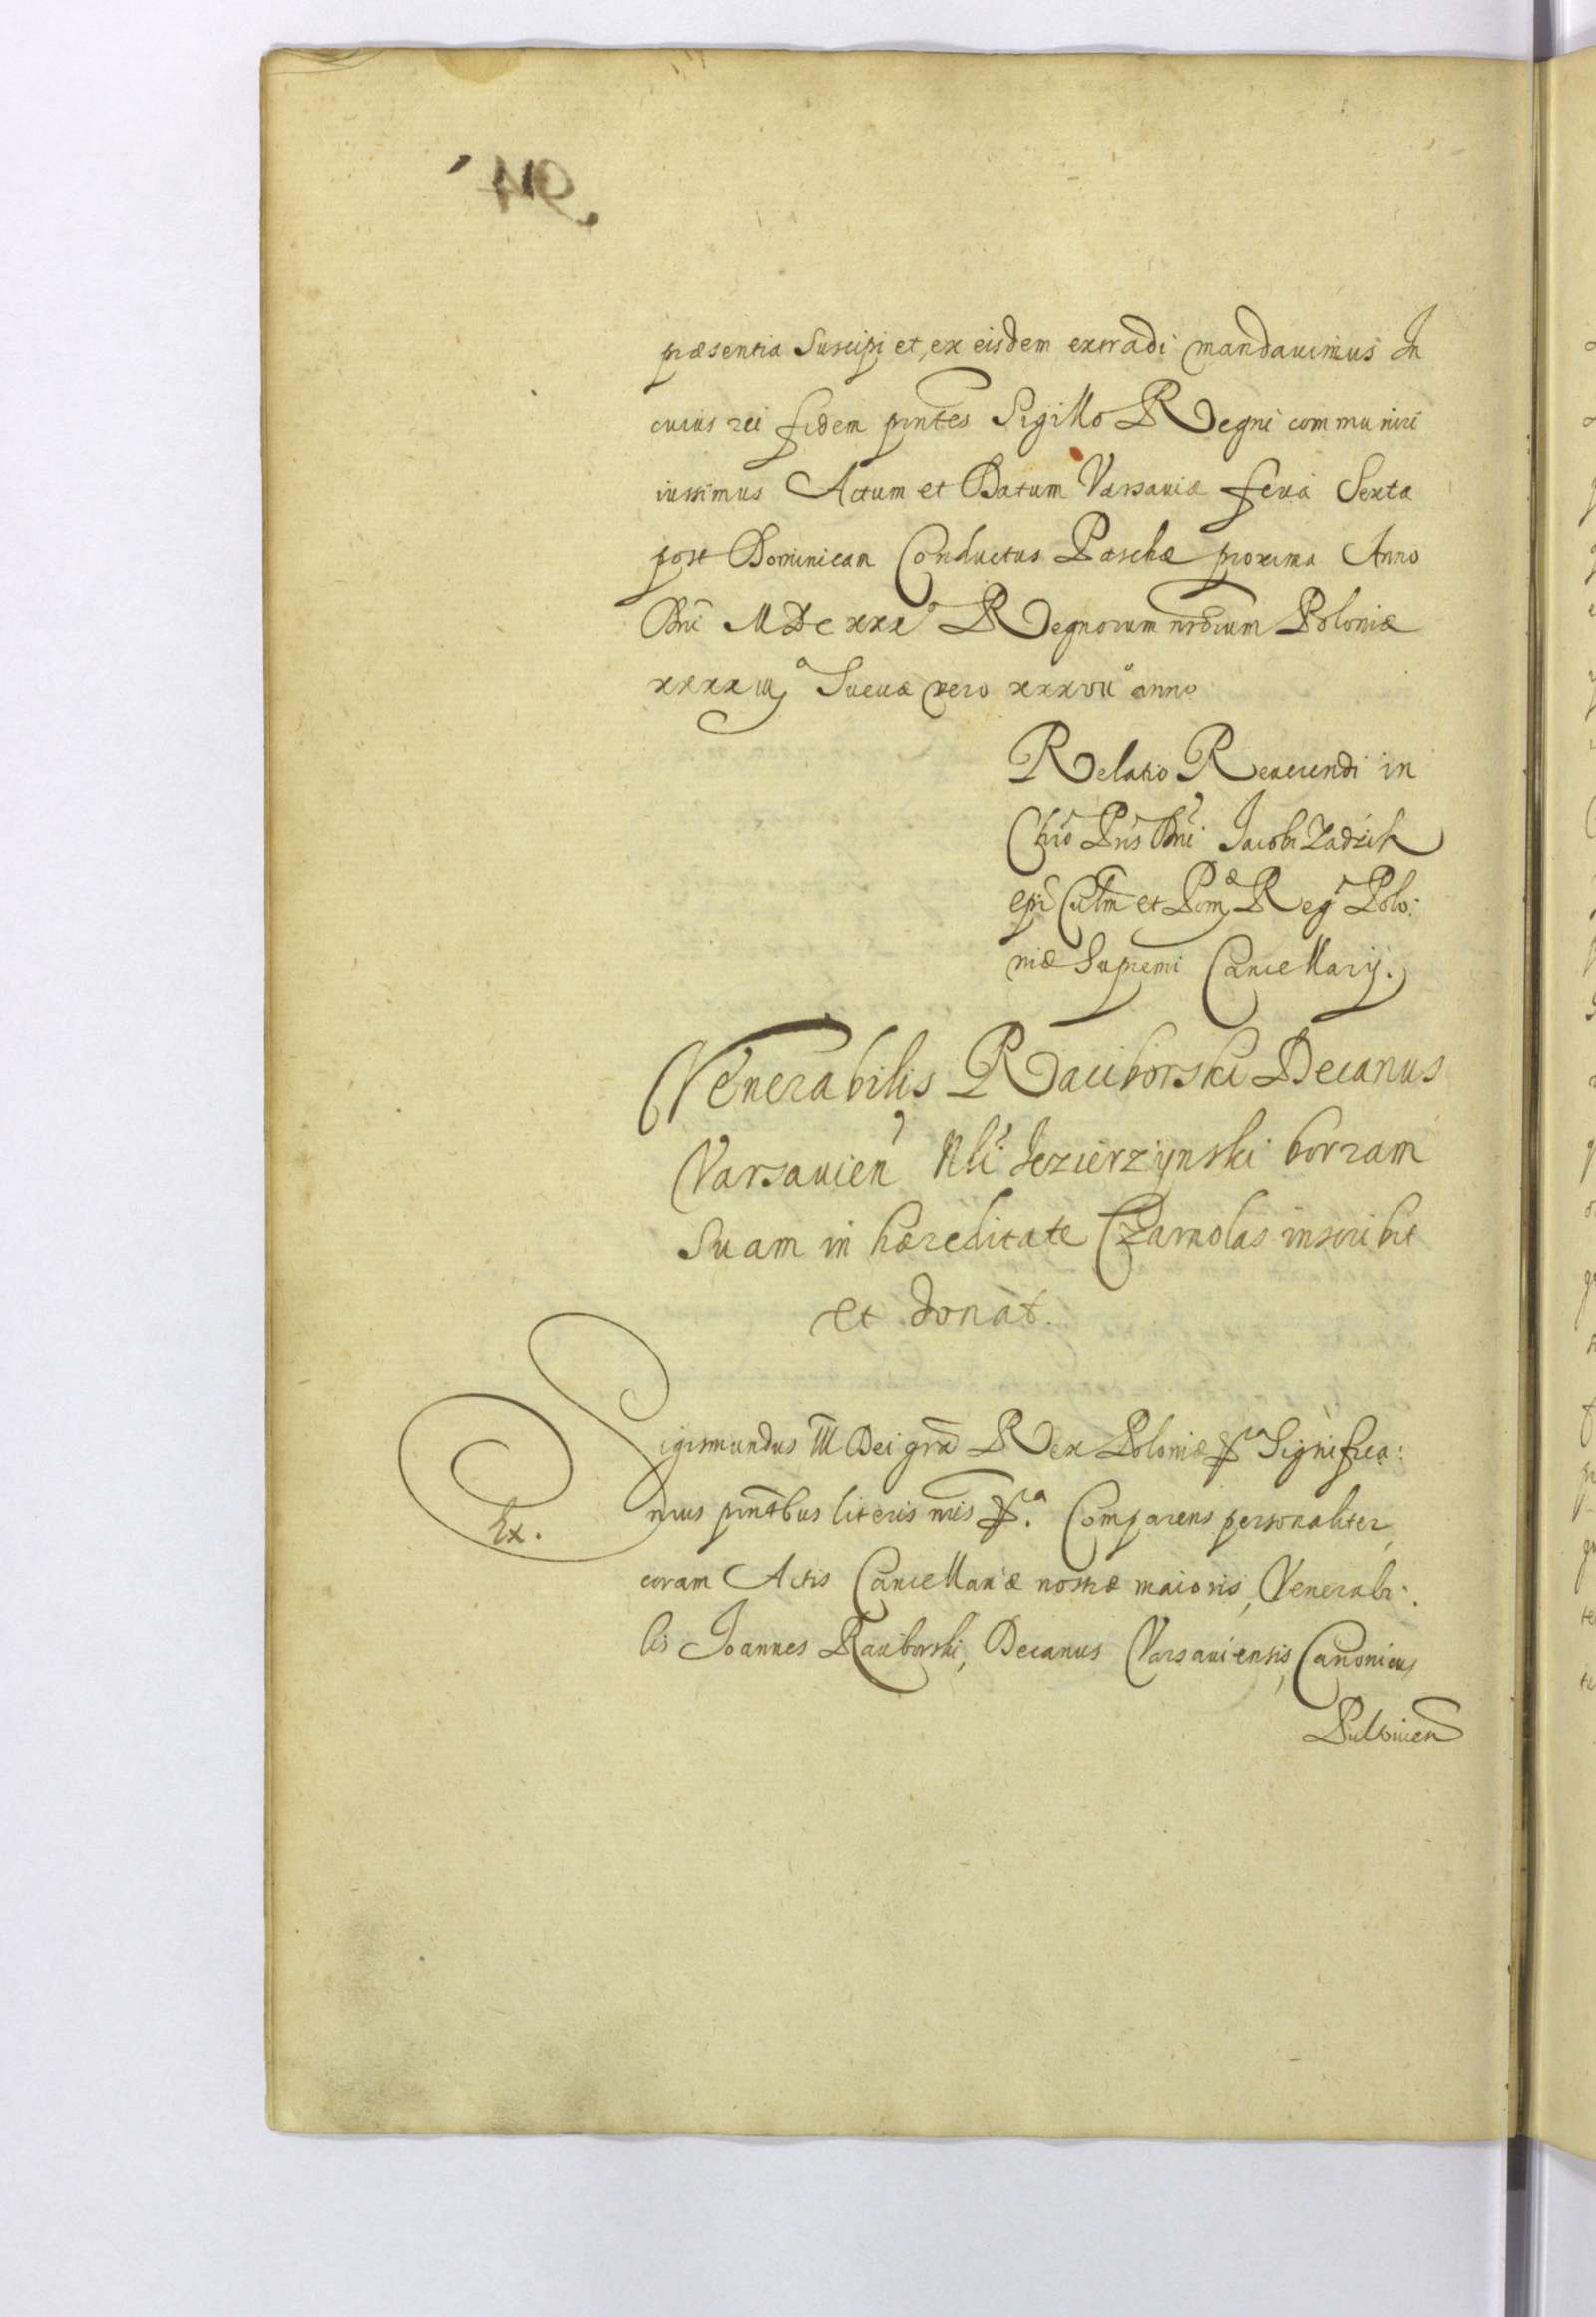 914
præsentia Suscipi et, ex eisdem extradi mandauimus In
cuius rei fidem pn̄tes Sigillo Regni communiri
iussimus Actum et Datum Varsauiæ feria Sexta
post Dominicam Conductus Paschæ proxima Anno
Dn̄i MDCxxx° Regnorum nr̄orum Poloniæ
xxxxiij° Sueuæ vero xxxvii° anno
Relatio Reuerendi in
Chr̄o Pr̄is Dn̄i Jacobi Zadzik
epī Culm̄ et Pom̄ Reg Polo:
niæ Supremi Cancellarij.
Venerabilis Raciborski Decanus
Varsauien Nli Jezierzynski bortam
Suam in hæreditate Czarnolas inscribit
et donat.
Sigismundus III Dei grā Rex Poloniæ &ca Significa:
Ex.
mus pn̄tibus literis nr̄is &ca. Comparens personaliter
coram Actis Cancellariæ nostræ maioris, Venerabi:
lis Joannes Raciborski, Decanus Varsauiensis, Canonicus
Pultouien